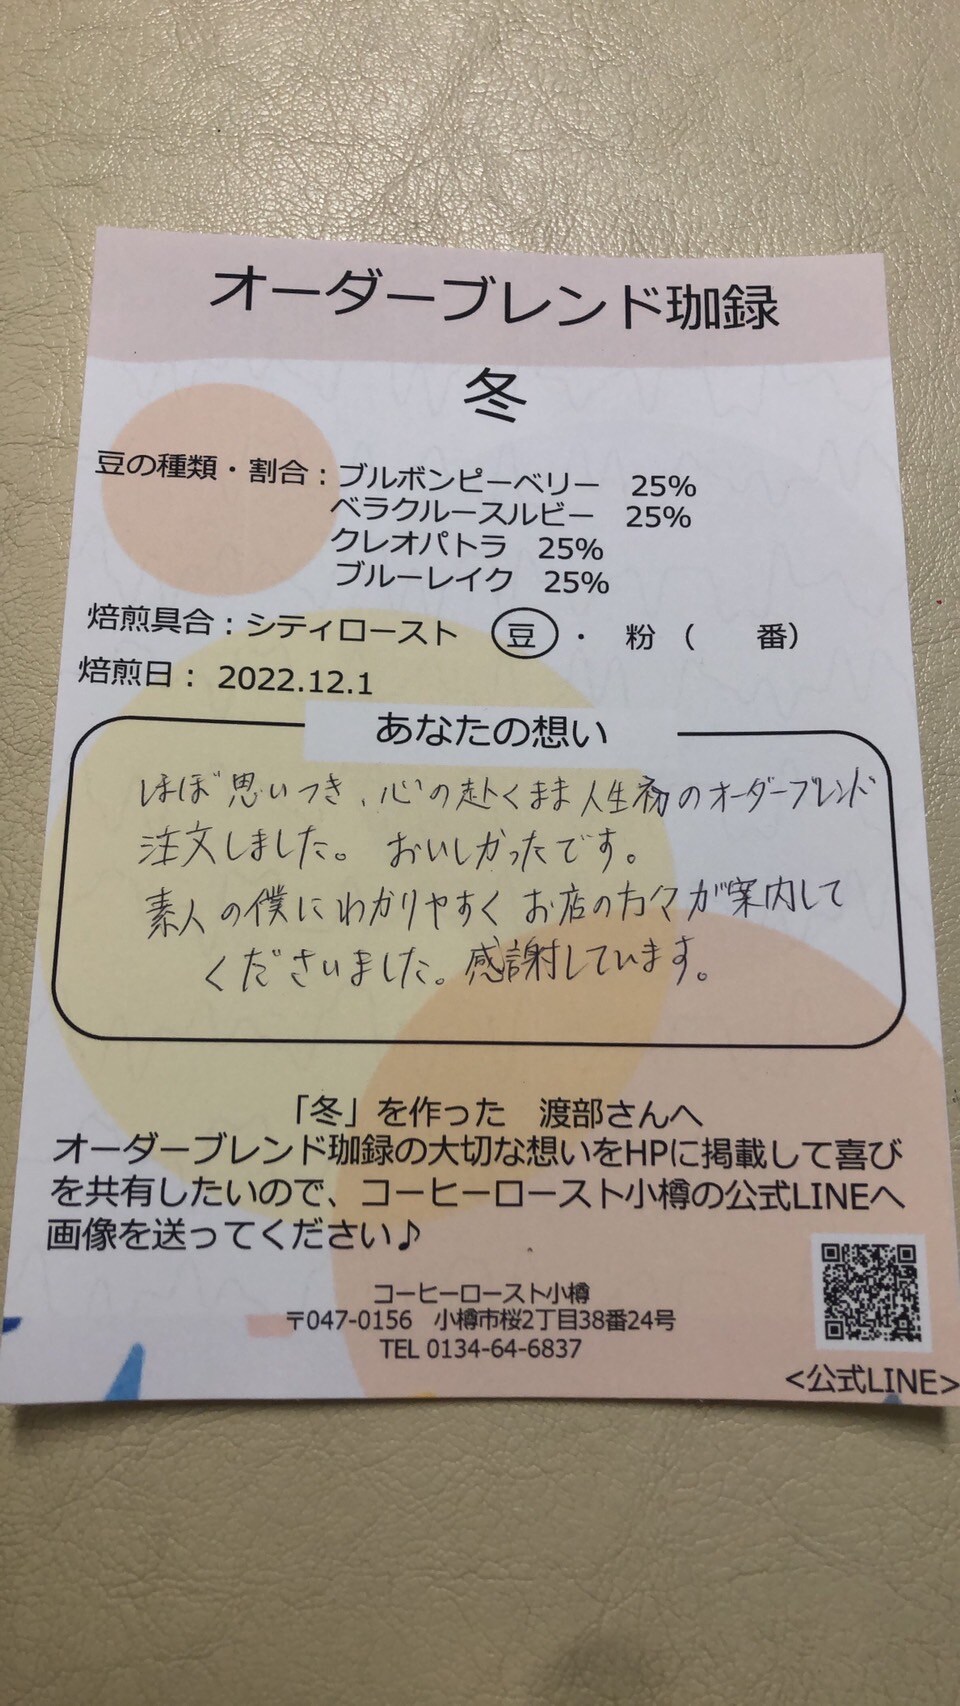 オーダーブレンド珈録
冬
豆の種類・割合：ブルボンピーベリー　25%
ベラクルースルビー　25%
クレオパトラ　25%
ブルーレイク　25%
焙煎具合：シティロースト　豆・粉（　　番）
焙煎日： 2022.12.1
あなたの想い
ほぼ思いつき、心の赴くまま人生初のオーダーブレンド
注文しました。 おいしかったです。
素人の僕にわかりやすくお店の方々が案内して
くださいました。感謝しています。
「冬」を作った　渡部さんへ
オーダーブレンド珈録の大切な想いをHPに掲載して喜び
を共有したいので、コーヒーロースト小樽の公式LINEへ
画像を送ってください♪
コーヒーロースト小樽
〒047-0156　小樽市桜2丁目38番24号
TEL 0134-64-6837
<公式LINE>